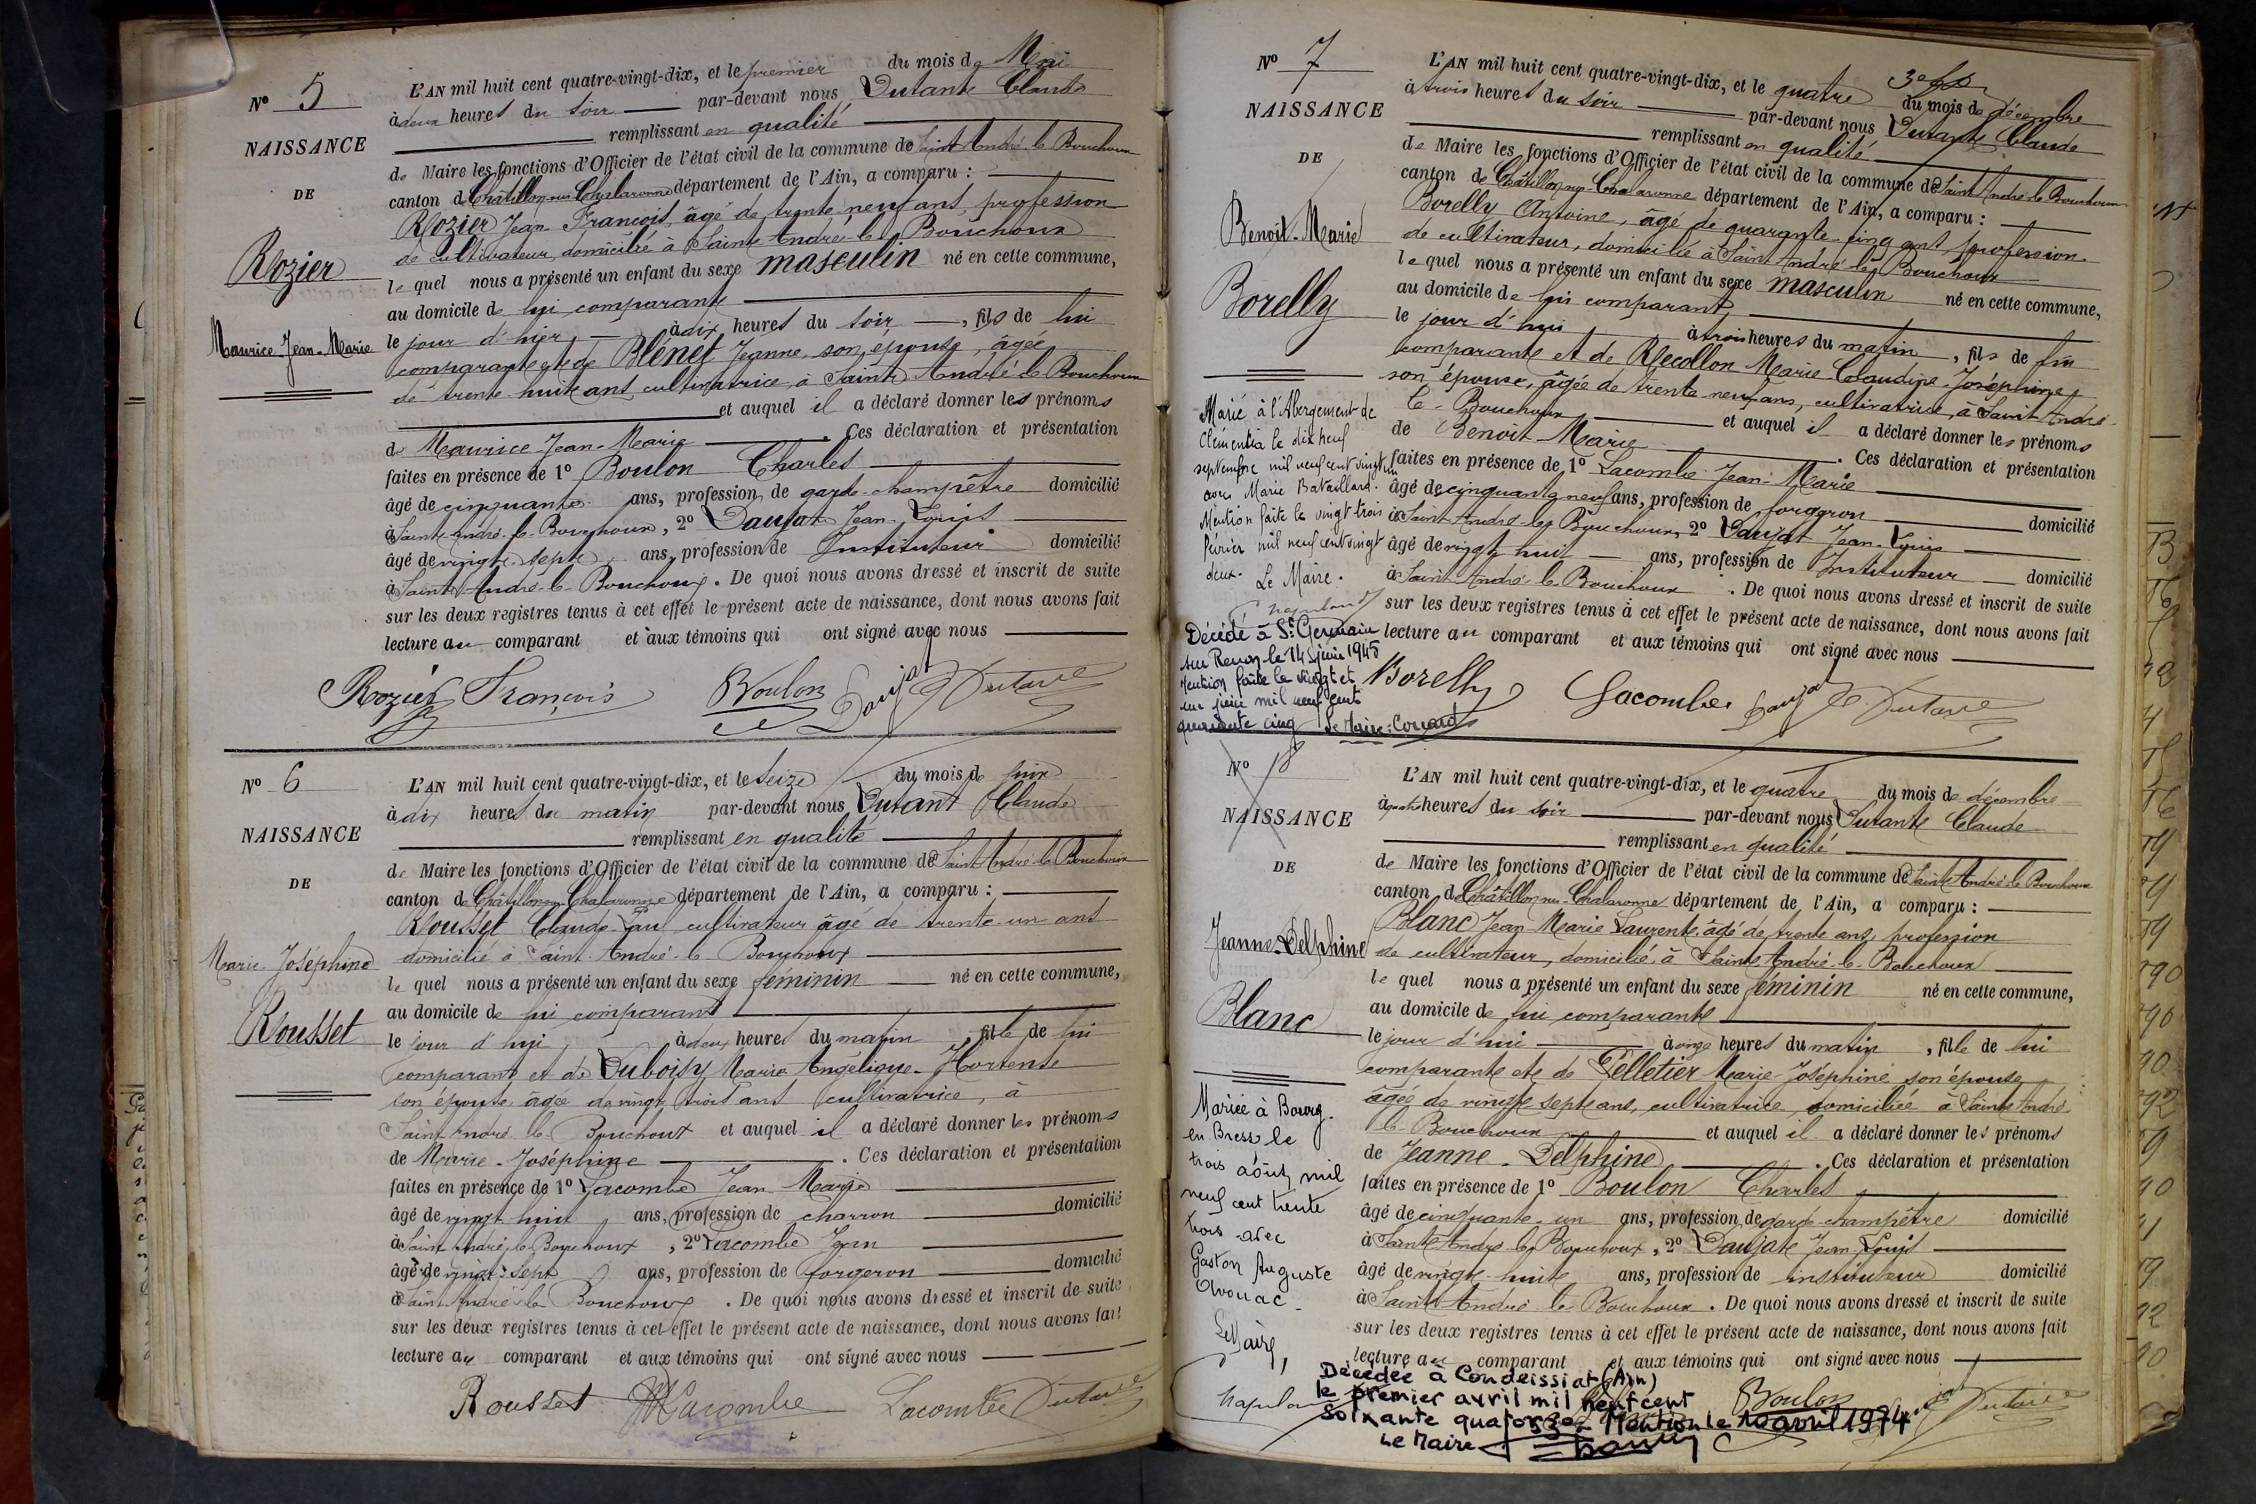 N° 5
NAISSANCE
DE
Rozier
Maurice Jean-Marie
L'AN mil huit cent quatre-vingt-dix, et le premier du mois de Mai
à deux heures du soir par-devant nous Dutant Claude
remplissant en qualité
de Maire les fonctions d'Officier de l'état civil de la commune de Saint André le Bouchoux
canton de Châtillon-sur-Chalaronne département de l'Ain, a comparu :
Rozier Jean François, âgé de trente neuf ans, profession
de cultivateur, domicilié à Saint André le Bouchoux
le quel nous a présenté un enfant du sexe masculin né en cette commune,
au domicile de lui comparant
le jour d'hier à dix heures du soir, fils de lui
comparant et de Blénet Jeanne son épouse, âgée
de trente huit ans cultivatrice à Saint André le Bouchoux
et auquel il a déclaré donner les prénoms
de Maurice Jean-Marie. Ces déclaration et présentation
faites en présence de 1° Boulon Charles
âgé de cinquante ans, profession de garde-champêtre domicilié
à Saint André-le-Bouchoux, 2° Daujat Jean-Louis
âgé de vingt-sept ans, profession de Instituteur domicilié
à Saint-André-le-Bouchoux. De quoi nous avons dressé et inscrit de suite
sur les deux registres tenus à cet effet le présent acte de naissance, dont nous avons fait
lecture au comparant et aux témoins qui ont signé avec nous
Rozier François Boulon Daujat Dutant
N° 6
NAISSANCE
DE
Marie Joséphine
Rousset
L'AN mil huit cent quatre-vingt-dix, et le seize du mois de juin
à dix heures du matin par-devant nous Dutant Claude
remplissant en qualité
de Maire les fonctions d'Officier de l'état civil de la commune de Saint André le Bouchoux
canton de Châtillon-sur-Chalaronne département de l'Ain, a comparu :
Rousset Claude-Paul cultivateur âgé de trente-un ans
domicilié à Saint-André-le-Bouchoux
le quel nous a présenté un enfant du sexe féminin né en cette commune,
au domicile de lui comparant
le jour d'hui à deux heures du matin, fille de lui
comparant et de Duboisy Marie Angélique-Hortense
son épouse âgée de vingt trois ans cultivatrice, à
Saint André le Bouchoux et auquel il a déclaré donner les prénoms
de Marie-Joséphine. Ces déclaration et présentation
faites en présence de 1° Lacombe Jean-Marie
âgé de vingt huit ans, profession de charron domicilié
à Saint André le Bouchoux, 2° Lacombe Jean
âgé de vingt-sept ans, profession de forgeron domicilié
à Saint André le Bouchoux. De quoi nous avons dressé et inscrit de suite
sur les deux registres tenus à cet effet le présent acte de naissance, dont nous avons fait
lecture au comparant et aux témoins qui ont signé avec nous
Rousset Lacombe Lacombe Dutant
N° 7
NAISSANCE
DE
Benoît-Marie
Borelly
Marié à l'Abergement de
Clémentia le dix neuf
septembre mil neuf cent vingt un
avec Marie Bataillard.
Mention faite le vingt trois
février mil neuf cent vingt
deux. Le Maire.
Décédé à St Germain
sur Renon le 14 juin 1945
Mention faite le vingt et
un juin mil neuf cent
quarante cinq Le Maire:
L'AN mil huit cent quatre-vingt-dix, et le quatre du mois de décembre
à trois heures du soir par-devant nous Dutant Claude
remplissant en qualité
de Maire les fonctions d'Officier de l'état civil de la commune de Saint André le Bouchoux
canton de Châtillon-sur-Chalaronne département de l'Ain, a comparu :
Borelly Antoine, âgé de quarante-cinq ans profession
de cultivateur, domicilié à Saint André le Bouchoux
le quel nous a présenté un enfant du sexe masculin né en cette commune,
au domicile de lui comparant
le jour d'hui à trois heures du matin, fils de lui
comparant et de Recollon Marie-Claudine-Joséphine
son épouse, âgée de trente neuf ans, cultivatrice, à Saint-André-
le-Bouchoux et auquel il a déclaré donner les prénoms
de Benoît-Marie. Ces déclaration et présentation
faites en présence de 1° Lacombe Jean-Marie
âgé de cinquante neuf ans, profession de forgeron domicilié
à Saint-André-le-Bouchoux, 2° Daujat Jean-Louis
âgé de vingt huit ans, profession de Instituteur domicilié
à Saint-André le Bouchoux. De quoi nous avons dressé et inscrit de suite
sur les deux registres tenus à cet effet le présent acte de naissance, dont nous avons fait
lecture au comparant et aux témoins qui ont signé avec nous
Borelly Lacombe Daujat Dutant
N° 8
NAISSANCE
DE
Jeanne-Delphine
Blanc
Mariée à Bourg-
en Bresse le
trois août mil
neuf cent trente
trois avec
Gaston Auguste
Ovouac.
Le Maire,
L'AN mil huit cent quatre-vingt-dix, et le quatre du mois de décembre
à quatre heures du soir par-devant nous Dutant Claude
remplissant en qualité
de Maire les fonctions d'Officier de l'état civil de la commune de Saint André le Bouchoux
canton de Châtillon-sur-Chalaronne département de l'Ain, a comparu :
Blanc Jean-Marie Laurent, âgé de trente ans, profession
de cultivateur, domicilié à Saint-André-le-Bouchoux
le quel nous a présenté un enfant du sexe féminin né en cette commune,
au domicile de lui comparant
le jour d'hui à onze heures du matin, fille de lui
comparant et de Pelletier Marie-Joséphine son épouse
âgée de vingt-sept ans, cultivatrice, domiciliée à Saint-André-
le Bouchoux et auquel il a déclaré donner les prénoms
de Jeanne-Delphine. Ces déclaration et présentation
faites en présence de 1° Boulon Charles
âgé de cinquante-un ans, profession de garde-champêtre domicilié
à Saint André le Bouchoux, 2° Daujat Jean-Louis
âgé de vingt-huit ans, profession de instituteur domicilié
à Saint-André le Bouchoux. De quoi nous avons dressé et inscrit de suite
sur les deux registres tenus à cet effet le présent acte de naissance, dont nous avons fait
lecture au comparant et aux témoins qui ont signé avec nous
Décédée à Condeissiat (Ain)
le premier avril mil neuf cent
soixante quatorze - Mention le 10 avril 1974
Le Maire
Boulon Dutant